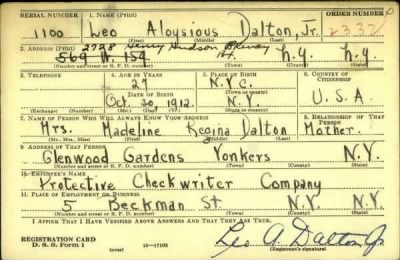 SERIAL NUMBER 1. NAME (Print) ORDER NUMBER
1100 Leo Aloysious Dalton, Jr. 2332
(First) (Middle) (Last)
2. ADDRESS (Print) 2728 Henry Hudson Pkway
569 W. 159 N.Y. N.Y.
(Number and street or R. F. D. number) (Town) (County) (State)
3. TELEPHONE 4. AGE IN YEARS 5. PLACE OF BIRTH 6. COUNTRY OF CITIZENSHIP
27 N.Y.C.
DATE OF BIRTH (Town or county)
Oct. 20 1912. N.Y. U.S.A.
(Exchange) (Number) (Mo.) (Day) (Yr.) (State or country)
7. NAME OF PERSON WHO WILL ALWAYS KNOW YOUR ADDRESS 8. RELATIONSHIP OF THAT PERSON
Mrs. Madeline Regina Dalton Mother.
(Mr., Mrs., Miss) (First) (Middle) (Last)
9. ADDRESS OF THAT PERSON
Glenwood Gardens Yonkers N.Y.
(Number and street or R. F. D. number) (Town) (County) (State)
10. EMPLOYER'S NAME
Protective Checkwriter Company
11. PLACE OF EMPLOYMENT OR BUSINESS
5 Beekman St. N.Y. N.Y.
(Number and street or R. F. D. number) (Town) (County) (State)
I AFFIRM THAT I HAVE VERIFIED ABOVE ANSWERS AND THAT THEY ARE TRUE.
REGISTRATION CARD
D. S. S. FORM 1 (over) 16—17105 Leo A. Dalton Jr.
(Registrant's signature)